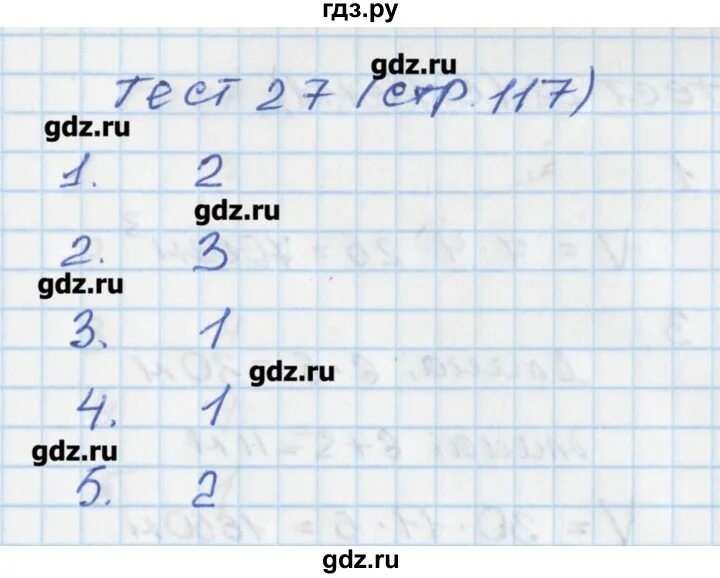 гдз.ру
gdz.ru
тест 27 (стр. 117)
gdz.ru
1. 2
gdz.ru
2. 3
gdz.ru
3. 1
gdz.ru
4. 1
gdz.ru
5. 2
gdz.ru